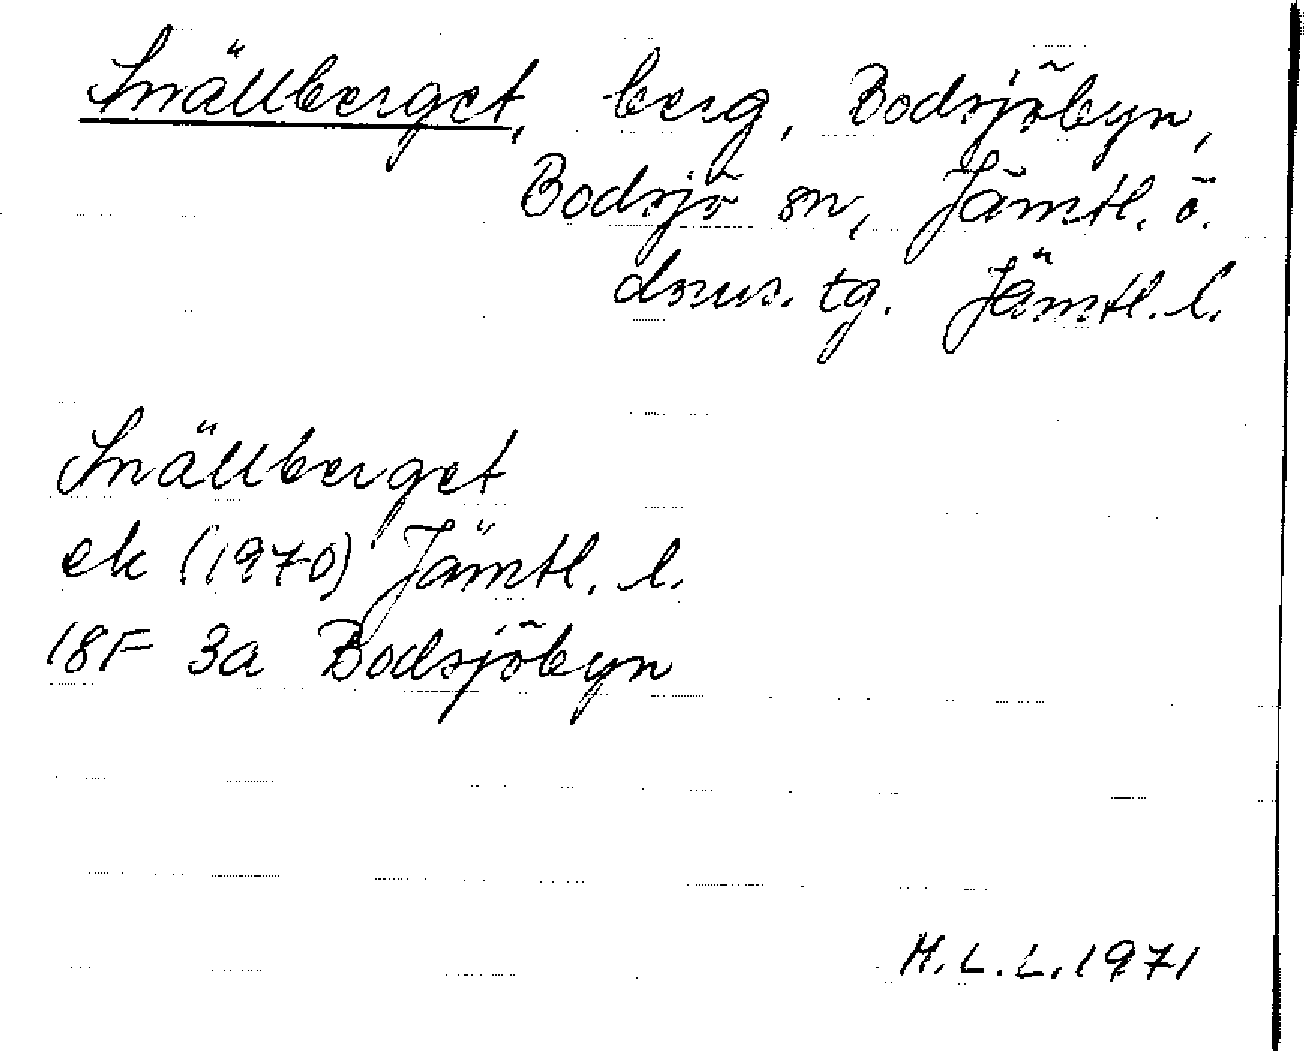 Snällberget, berg, Bodsjöbyn,
Bodsjö sn, Jämtl. ö.
dms. tg. Jämtl. l.
Snällberget
ek (1970) Jämtl. l.
18F 3a Bodsjöbyn
H.L.L. 1971